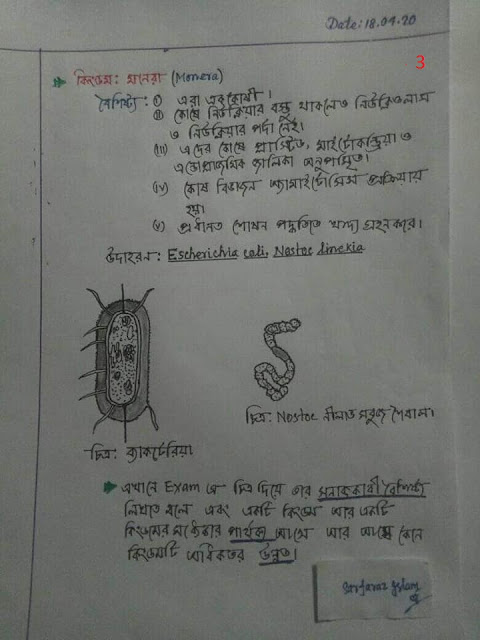 Date: 18.04.20
3
কিংডম: মনেরা (Monera)
বৈশিষ্ট্য: (i) এরা এককোষী।
(ii) কোষে নিউক্লিয়ার বস্তু থাকলেও নিউক্লিওলাস
ও নিউক্লিয়ার পর্দা নেই।
(iii) এদের কোষে প্লাস্টিড, মাইটোকন্ড্রিয়া ও
এন্ডোপ্লাজমিক জালিকা অনুপস্থিত।
(iv) কোষ বিভাজন অ্যামাইটোসিস প্রক্রিয়ায়
হয়।
(v) প্রধানত শোষন পদ্ধতিতে খাদ্য গ্রহন করে।
উদাহরন: Escherichia coli, Nostoc linckia
চিত্র: Nostoc নীলাভ সবুজ শৈবাল।
চিত্র: ব্যাকটেরিয়া
এখানে Exam এ চিত্র দিয়ে তার সনাক্তকারী বৈশিষ্ট্য
লিখতে বলে এবং একটি কিংডম আর একটি
কিংডমের মধ্যেকার পার্থক্য আসে আর আসে কোন
কিংডমটি অধিকতর উন্নত।